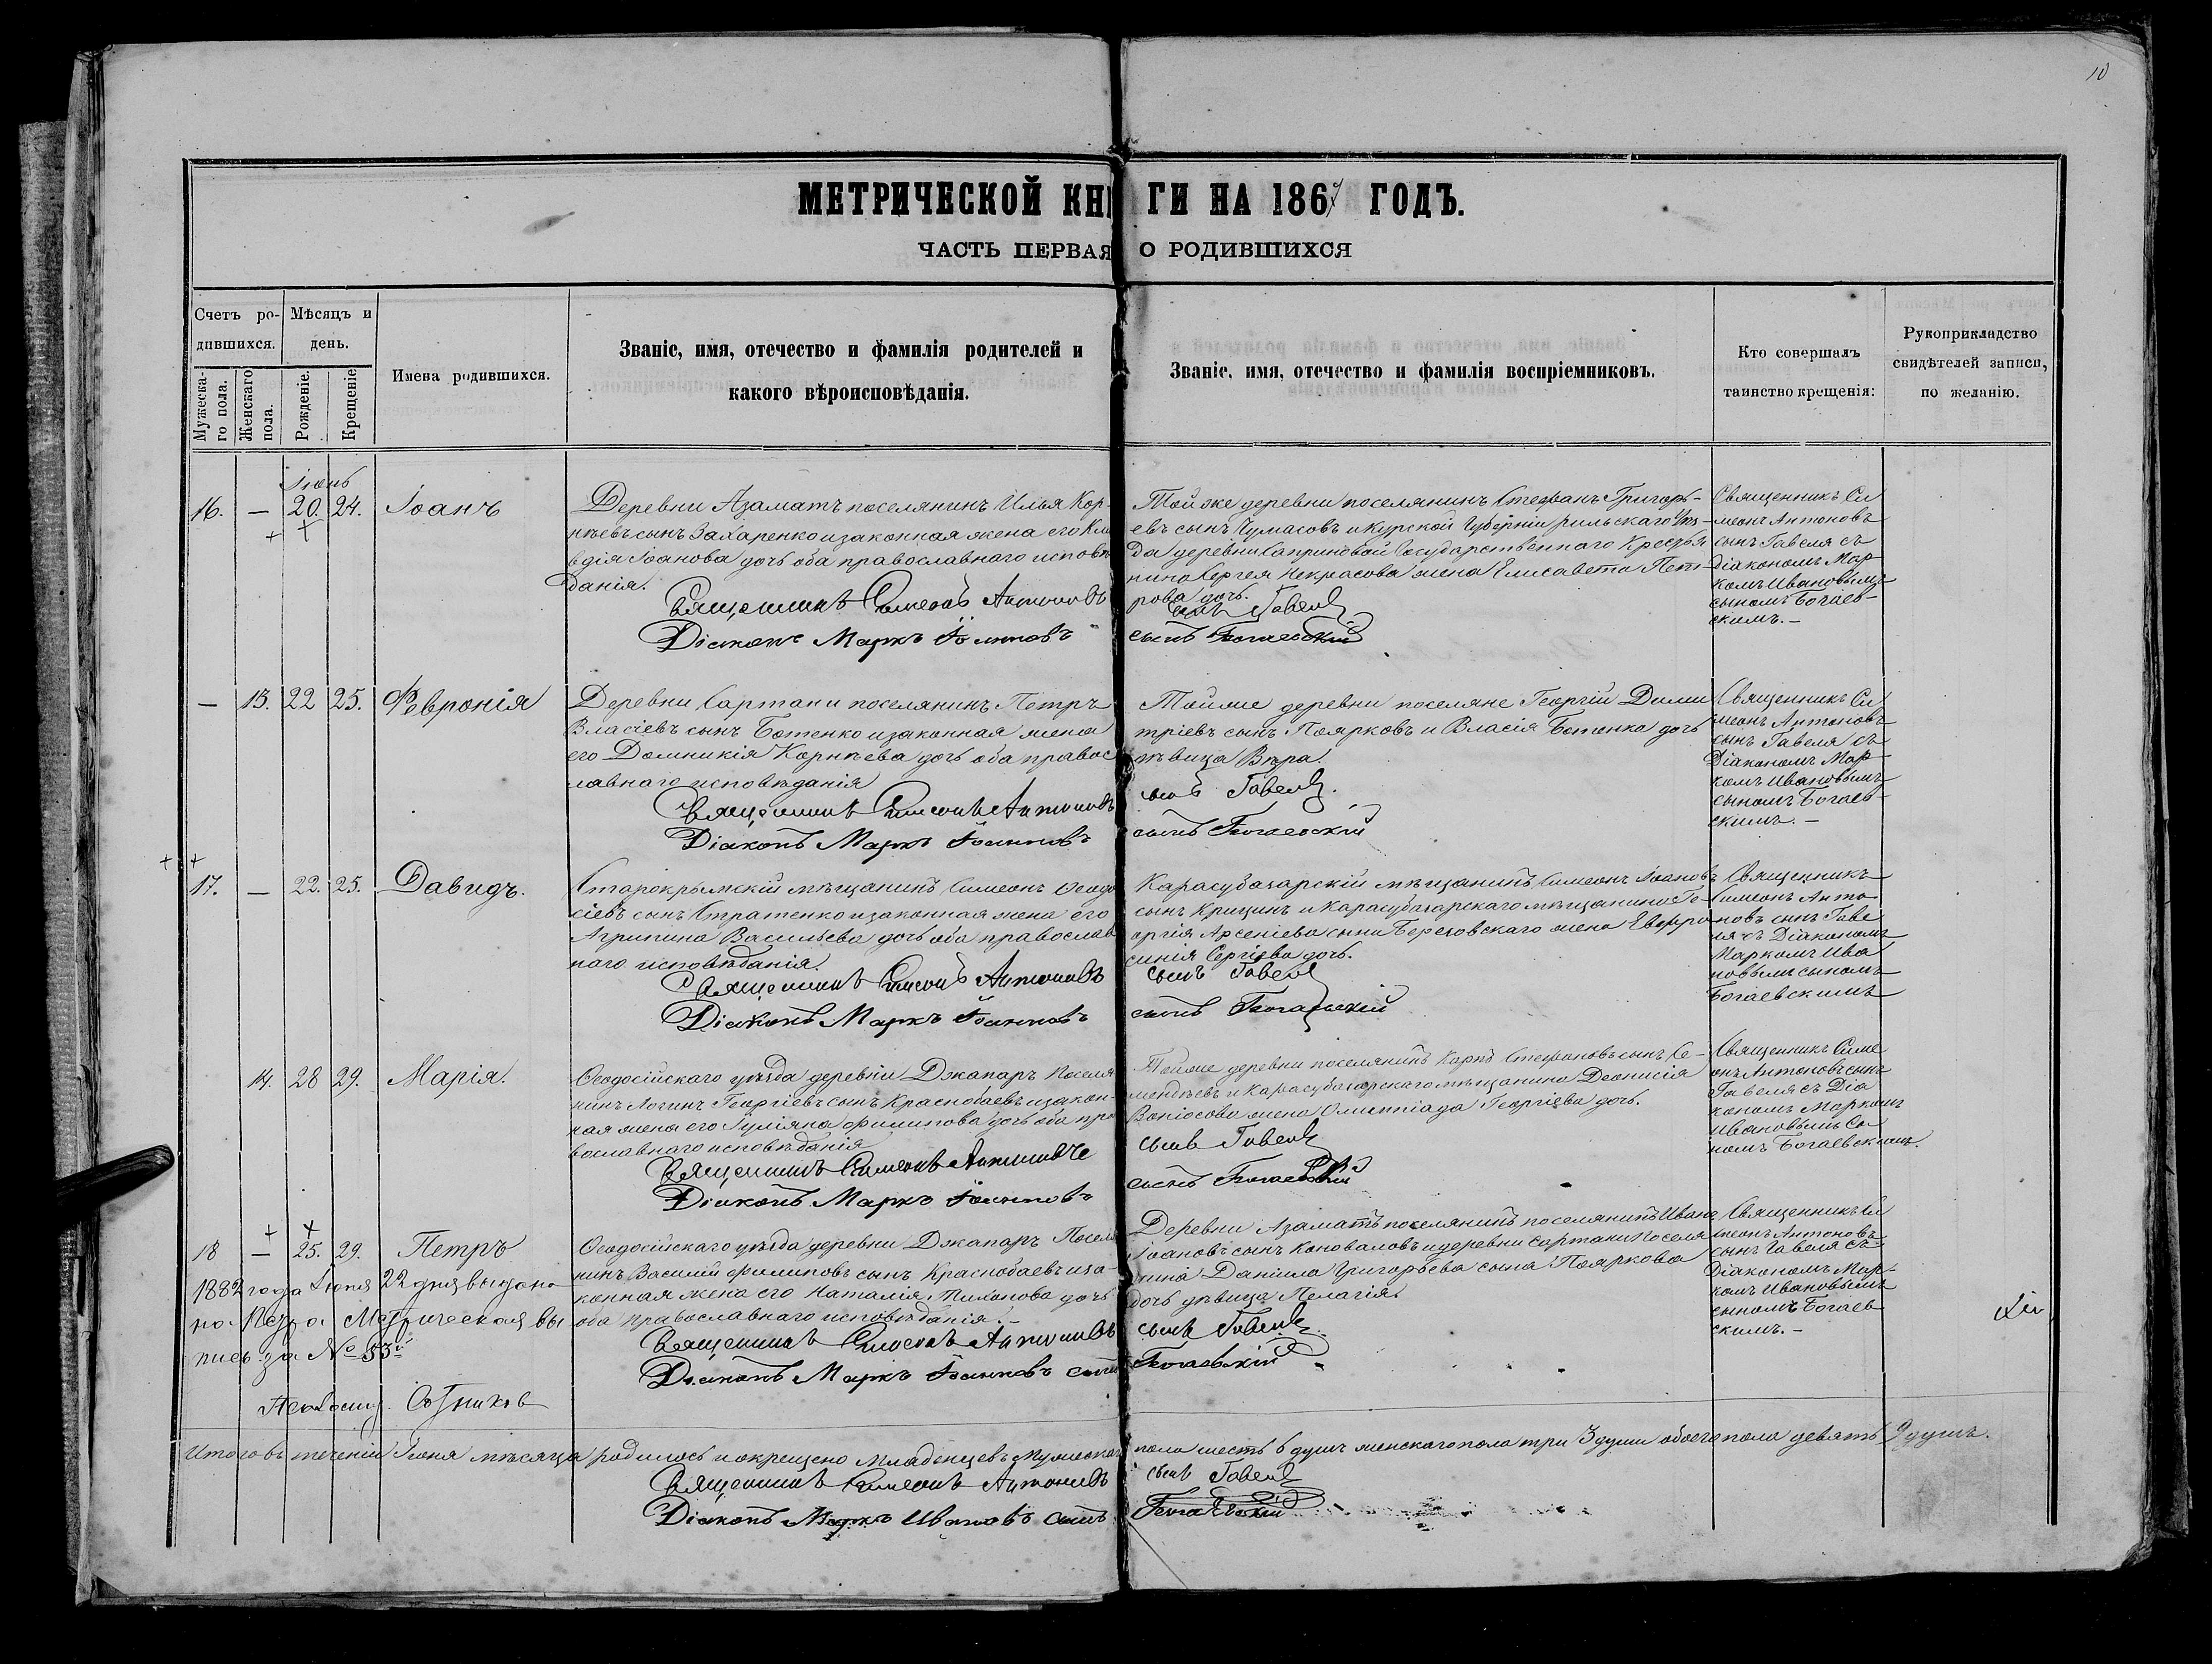 10
МЕТРИЧЕСКОЙ КНИГИ НА 1867 ГОДЪ.
ЧАСТЬ ПЕРВАЯ О РОДИВШИХСЯ
Счетъ ро-
дившихся.
Мужеска-
го пола.
Женскаго
пола.
Мѣсяцъ и
день.
Рожденіе.
Крещеніе
Имена родившихся.
Званіе, имя, отечество и фамилія родителей и
какого вѣроисповѣданія.
Званіе, имя, отечество и фамилія воспріемниковъ.
Кто совершалъ
таинство крещенія:
Рукоприкладство
свидѣтелей записи,
по желанію.
Іюнь
16. — 20. 24. Іоаннъ
Деревни Азаматъ поселянинъ Илья Кор-
нѣевъ сынъ Захаренко и законная жена его Кла
вдія Іоанова дочь оба православнаго исповѣ
данія.
Священникъ Симеонъ Антоновъ
Діаконъ Маркъ Іоанновъ
Той же деревни поселянинъ Стефанъ Григорь-
евъ сынъ Чумасовъ и Курской Губерніи рильскаго Уѣз-
да деревни Саприновой Государственнаго Крестья
нина Сергея Некрасова жена Елисавета Пет-
рова дочь.
сынъ Гавеля
сынъ Богаевскій
Священникъ Си
меонъ Антоновъ
сынъ Гавеля съ
діакономъ Мар
комъ Ивановымъ
сыномъ Богаев-
скимъ.—
— 13. 22 25. Февронія
Деревни Сартани поселянинъ Петръ
Власіевъ сынъБотенко и законная жена
его Домникія Корнѣева дочь оба правос
лавнаго исповѣданія
Священникъ Симеонъ Антоновъ
Діаконъ Маркъ Іоанновъ
Тойже деревни поселяне Георгій Дими
тріевъ сынъ Поярковъ и Власія Ботенка дочь
дѣвица Вѣра.
сынъ Гавеля.
сынъ Богаевскій
Священникъ Си
меонъ Антоновъ
сынъ Гавеля съ
Діакономъ Мар
комъ Ивановымъ
сыномъ Богаев-
скимъ.—
17. — 22. 25. Давидъ.
Старокрымскій мѣщанинъ Симеонъ Ѳеодо
сіевъ сынъ Стратенко и законная жена его
Агрипина Васильева дочь оба православ
наго исповѣданія.
Священникъ Симеонъ Антоновъ
Діаконъ Маркъ Іоанновъ
Карасубазарскій мѣщанинъ Симеонъ Іоановъ
сынъ Крицинъ и Карасубазарскаго мѣщанина Ге-
оргія Арсеніева сына Береховскаго жена Евфро
синія Сергіева дочь.
сынъ Гавеля
сынъ Богаевскій
Священникъ
Симеонъ Анто
новъ сынъ Гаве
ля съ Діакономъ
Маркомъ Ива
новымъ сыномъ
Богаевскимъ
14. 28 29. Марія.
Ѳеодосійскаго уѣзда деревни Джапаръ Поселя
нинъ Логинъ Георгіевъ сынъ Краснобаевъ и закон-
ная жена его Гуліяна Филипова дочь оба пра
вославнаго исповѣданія
Священникъ Симеонъ Антоновъ
Діаконъ Маркъ Іоанновъ
Тойже деревни поселянинъ Карпъ Стефановъ сынъ Се-
мендѣевъ и Карасубазарскаго мѣщанина Деонисія
жена Олимпіада Георгіева дочь.
сынъ Гавеля
сынъ Богаевскій
Священникъ Симе
онъ Антоновъ сынъ
Гавеля съ Діа
кономъ Маркомъ
Ивановымъ Сы
номъ Богаевскимъ.
18 — 25. 29. Петръ
Ѳеодосійскаго уѣзда деревни Джапаръ Поселя
нинъ Василій Филиповъ сынъ Краснобаевъ и за-
конная жена его Наталія Тихонова дочь
оба православнаго исповѣданія.—
Священникъ Симеонъ Антоновъ
Діаконъ Маркъ Іоанновъ сынъ
Деревни Азаматъ поселянинъ поселянинъ Иванъ
Іоановъ сынъ Коноваловъ и деревни Сартани поселя
нина Даніила Григорьева сына Пояркова
дочь дѣвица Пелагія.
сынъ Гавеля
Богаевскій
Священникъ Си
меонъ Антоновъ
сынъ Гавеля съ
Діакономъ Мар-
комъ Ивановымъ
сыномъ Богаев
скимъ.—
1882 года Іюня 22 дня выдана
на Петра Метрическая вы
пись за № 53
Итого въ теченіи Іюня мѣсяца родилось и окрещено Младенцевъ Мужескаго пола шесть 6 душъ женскаго пола три 3 души обоего пола девять 9 душъ.
Священникъ Симеонъ Антоновъ сынъ Гавеля
Діаконъ Маркъ Ивановъ сынъ Богаевскій